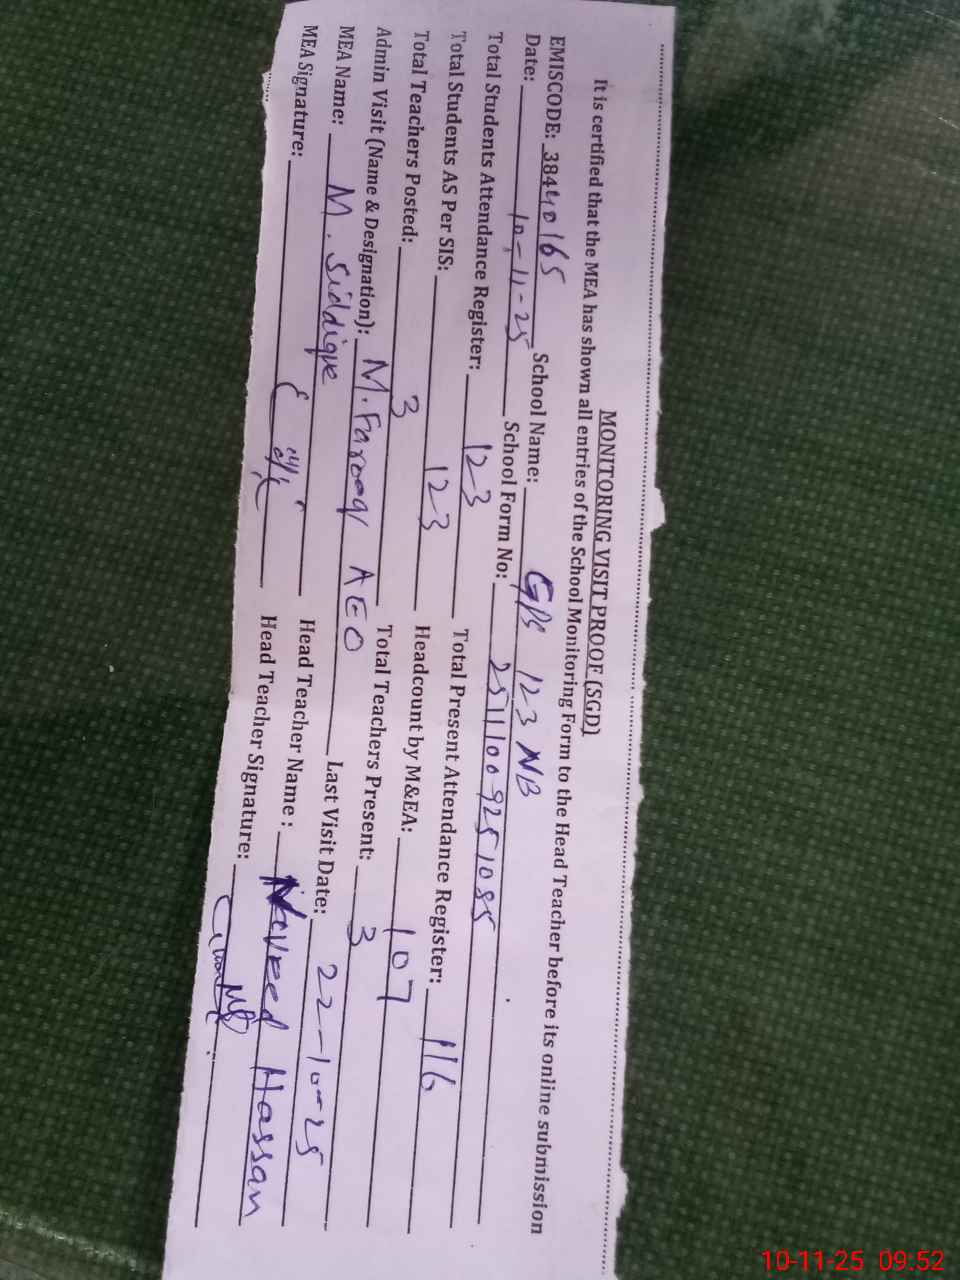 MONITORING VISIT PROOF (SGD)
It is certified that the MEA has shown all entries of the School Monitoring Form to the Head Teacher before its online submission
EMISCODE: 38440165 School Name: GPS 123 NB
Date: 10-11-25 School Form No: 25111009251085
Total Students Attendance Register: 123 Total Present Attendance Register: 116
Total Students AS Per SIS: 123 Headcount by M&EA: 107
Total Teachers Posted: 3 Total Teachers Present: 3
Admin Visit (Name & Designation): M. Farooq AEO Last Visit Date: 22-10-25
MEA Name: M. Siddique Head Teacher Name : Naveed Hassan
MEA Signature: Head Teacher Signature:
10-11-25 09:52